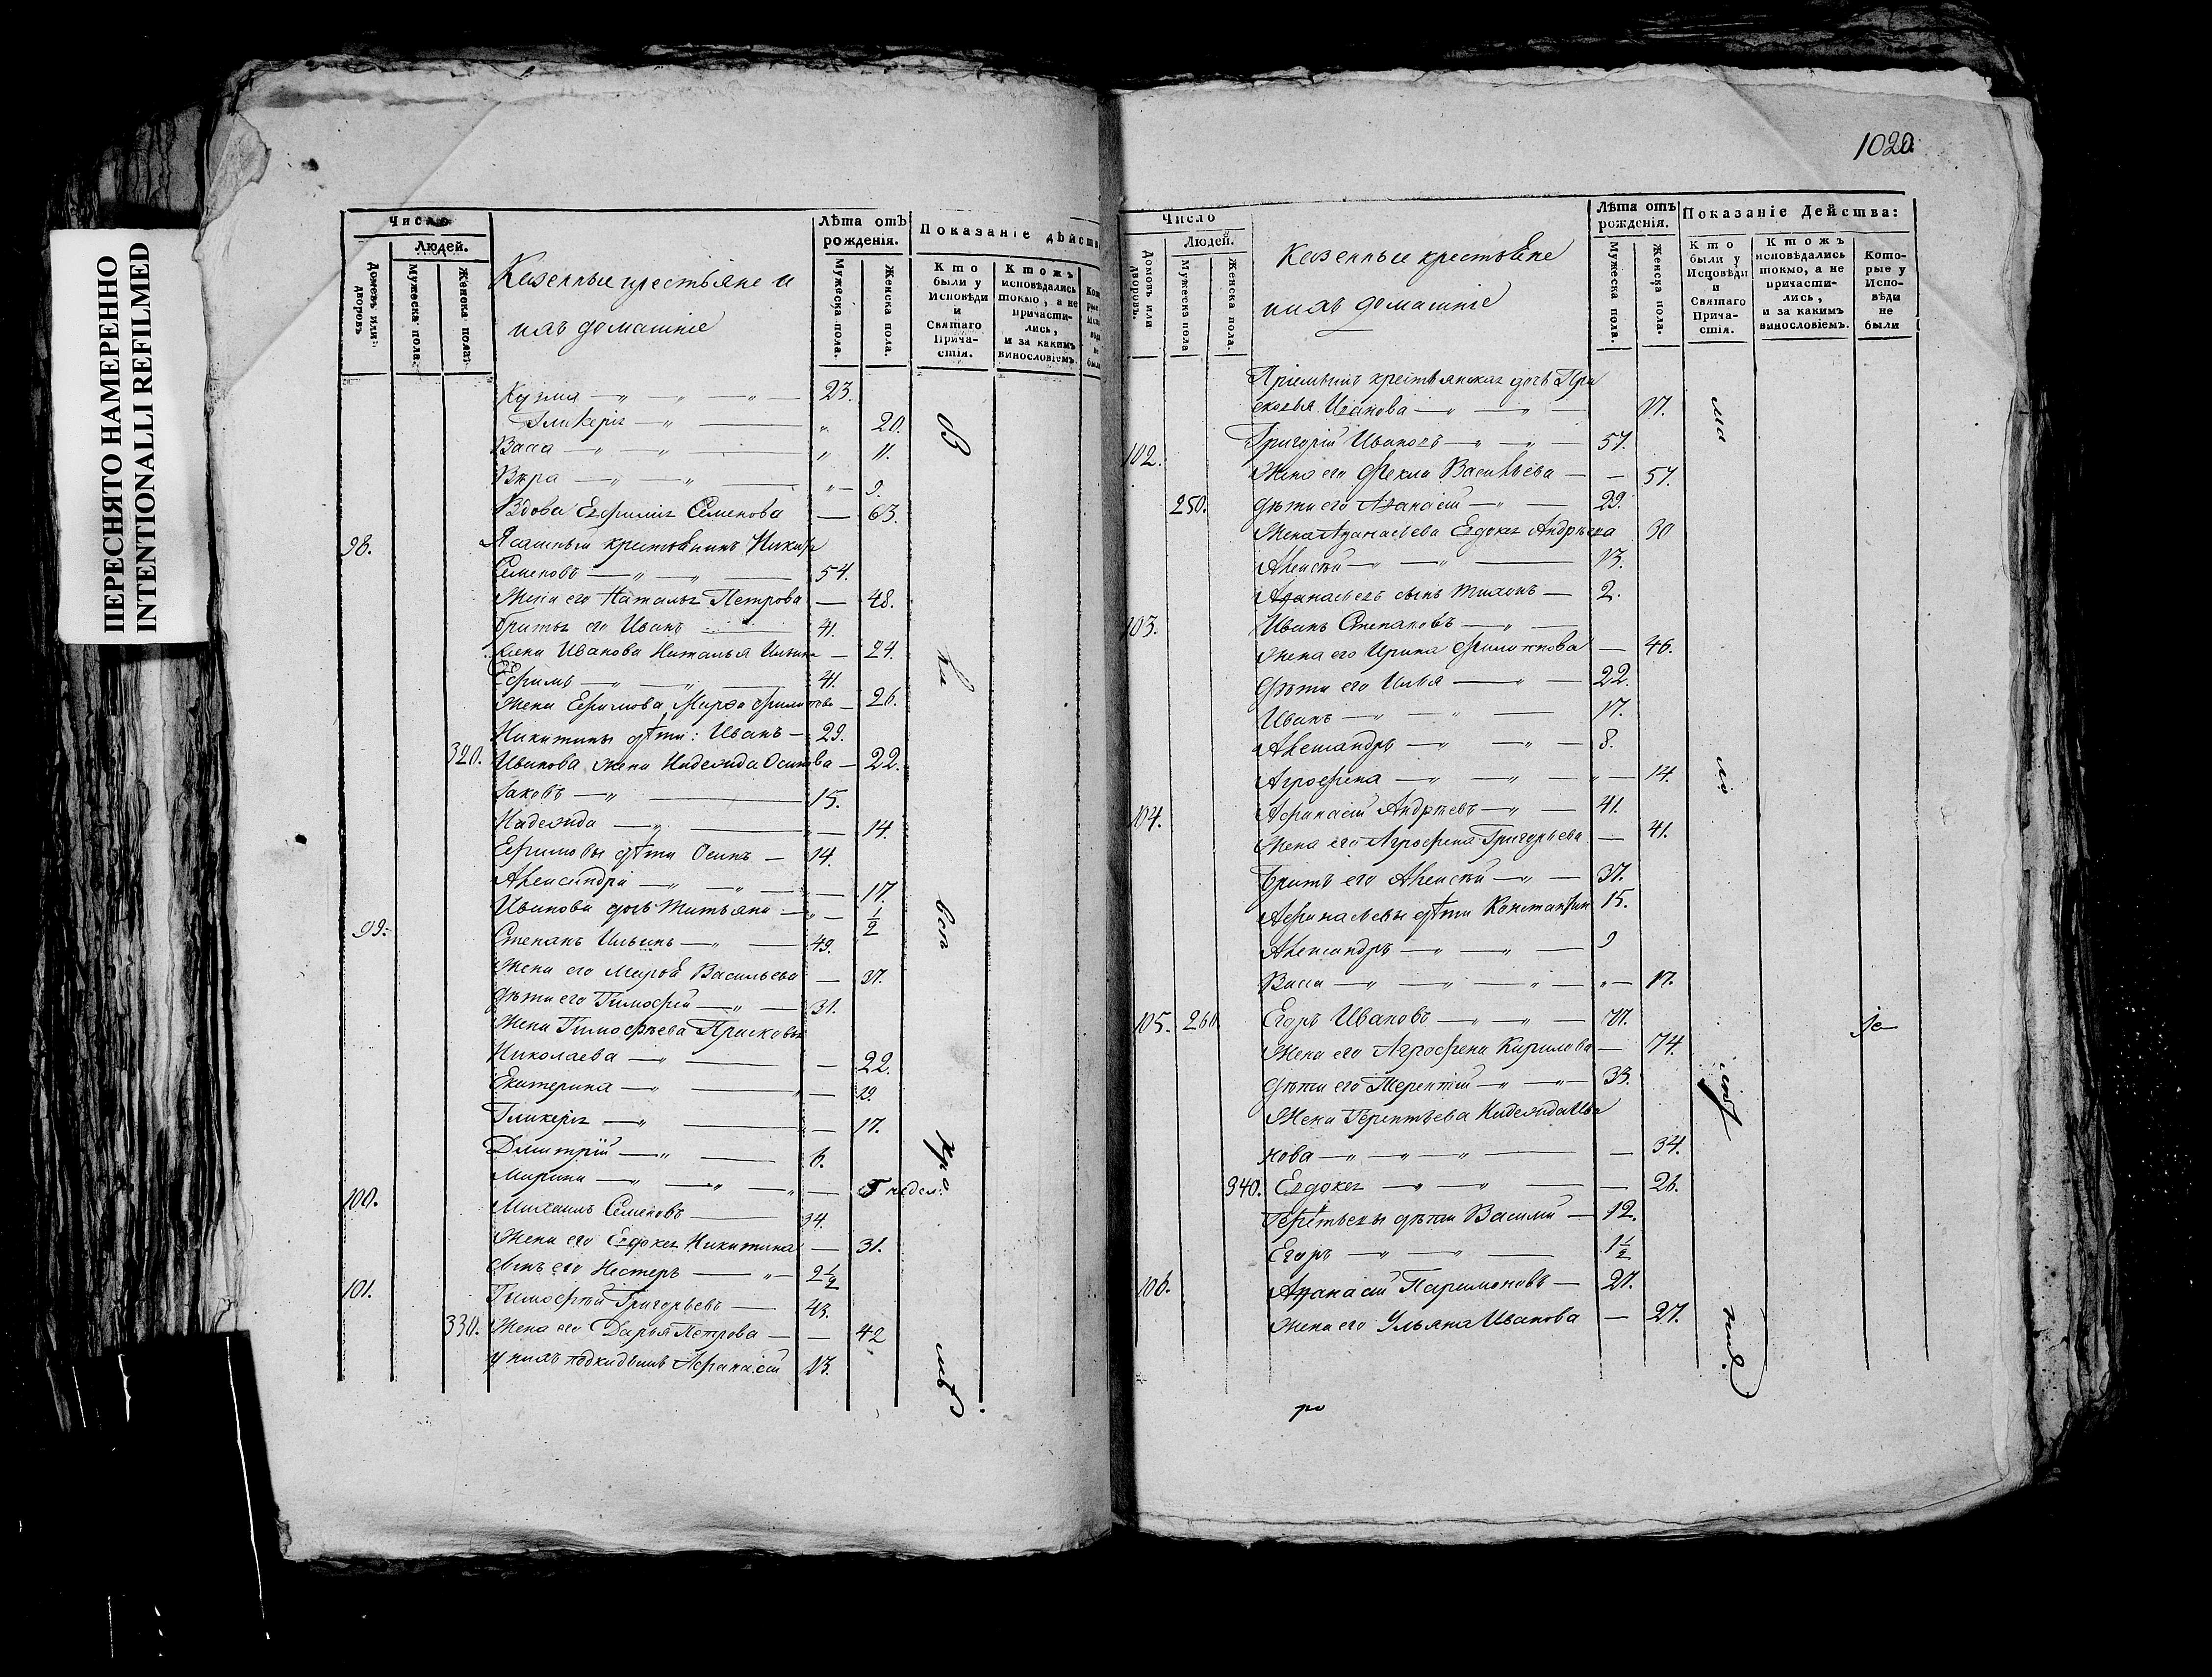 ПЕРЕСНЯТО НАМЕРЕННО
INTENTIONALLI REFILMED
Число
Людей.
Домовъ или дворовъ
Мужеска пола.
Женска пола.
Казенные крестьяне и
ихъ домашніе
Лѣта отъ рожденія.
Мужеска пола.
Женска пола.
Показаніе дѣйств
Кто были у Исповѣди и Святаго Причастія.
Ктожъ исповѣдались токмо, а не причастились, и за какимъ винословіемъ.
Кузма — „ — „ — 23.
Гликерія — „ — „ 20.
Васса — „ — „ — „ 11.
Вѣра — „ — „ — „ — 9.
Вдова Евфимія Семенова — 63.
98. Ясашный крестьянинъ Никифо
Семеновъ — „ — „ — 54.
Жена его Наталья Петрова — 48.
Братья его Иванъ — 41.
Жена Иванова Наталья Ильина — 24.
Ефимъ — „ — „ — 41.
Жена Ефимова Марфа Филипова — 26.
Никитины дѣти: Иванъ — 29.
320. Иванова жена Надежда Осипова — 22.
Іаковъ — „ — 15.
Надежда — „ — 14.
Ефимовы дѣти Осипъ — 14.
Александра — „ — „ — 17.
Иванова дочь Татьяна — „ — 1/2
99. Степанъ Ильинъ — „ — 49.
Жена его Марфа Васильева — 37.
Дѣти его Тимофей — „ — 31.
Жена Тимофѣева Прасковья
Николаева — „ — 22.
Екатерина — „ — 19.
Гликерія — „ — 17.
Дмитрій — „ — 6.
Марина — „ — „ — „ — 5 недел:
100. Михаилъ Семеновъ — 34.
Жена его Евдокія Никитина — 31.
Сынъ его Нестеръ — „ — 2 1/2
101. Тимофей Григорьевъ — 43.
330. Жена его Дарья Петрова — 42
у нихъ подкидышъ Афанасій 13.
1020.
Число
Людей.
Домовъ или дворовъ.
Мужеска пола
Женска пола.
Казенные крестьяне
и ихъ домашніе
Лѣта отъ рожденія.
Мужеска пола.
Женска пола.
Показаніе Действа:
Кто были у Исповѣди и Святаго Причастія.
Ктожъ исповѣдались токмо, а не причастились, и за какимъ винословіемъ.
Которые у Исповѣди не были
крестьянская дочь Пра
сковья Иванова — „ — „ — 17.
102. Григорій Ивановъ — „ — „ — 57.
Жена его Фекла Васильева — — 57.
250. дѣти его Афанасій — „ — 29.
Жена Афанасьева Евдокія Андрѣева 30
Алексѣй — „ — „ — 13.
Афанасьевъ сынъ Тихонъ — 2.
103. Иванъ Степановъ — „ —
Жена его Ирина Филиппова — 46.
Дѣти его Илья — „ — 22.
Иванъ — „ — „ — 17.
Александръ — „ — „ — 8.
Агрофена — „ — „ — „ — 14.
104. Афанасій Андрѣевъ — „ — 41.
Жена его Агрофена Григорьева — 41.
Братъ его Алексѣй — „ — 37.
Афанасьевы дѣти Константин 15.
Александръ — „ — „ — 9
Васса — „ — „ — „ — „ — 17.
105. 260. Егоръ Ивановъ — „ — „ — 77.
Жена его Агрофена Кирилова — 74.
дѣти его Терентій — „ — „ — 33.
Жена Терентьева Надежда Ива
нова — „ — „ — „ — 34.
340. Евдокія — „ — „ — 26.
Терентьевы дѣти Василій — 12.
Егоръ — „ — „ — 1 1/2
106. Афанасій Парамоновъ — 27.
Жена его Ульяна Иванова — 27.